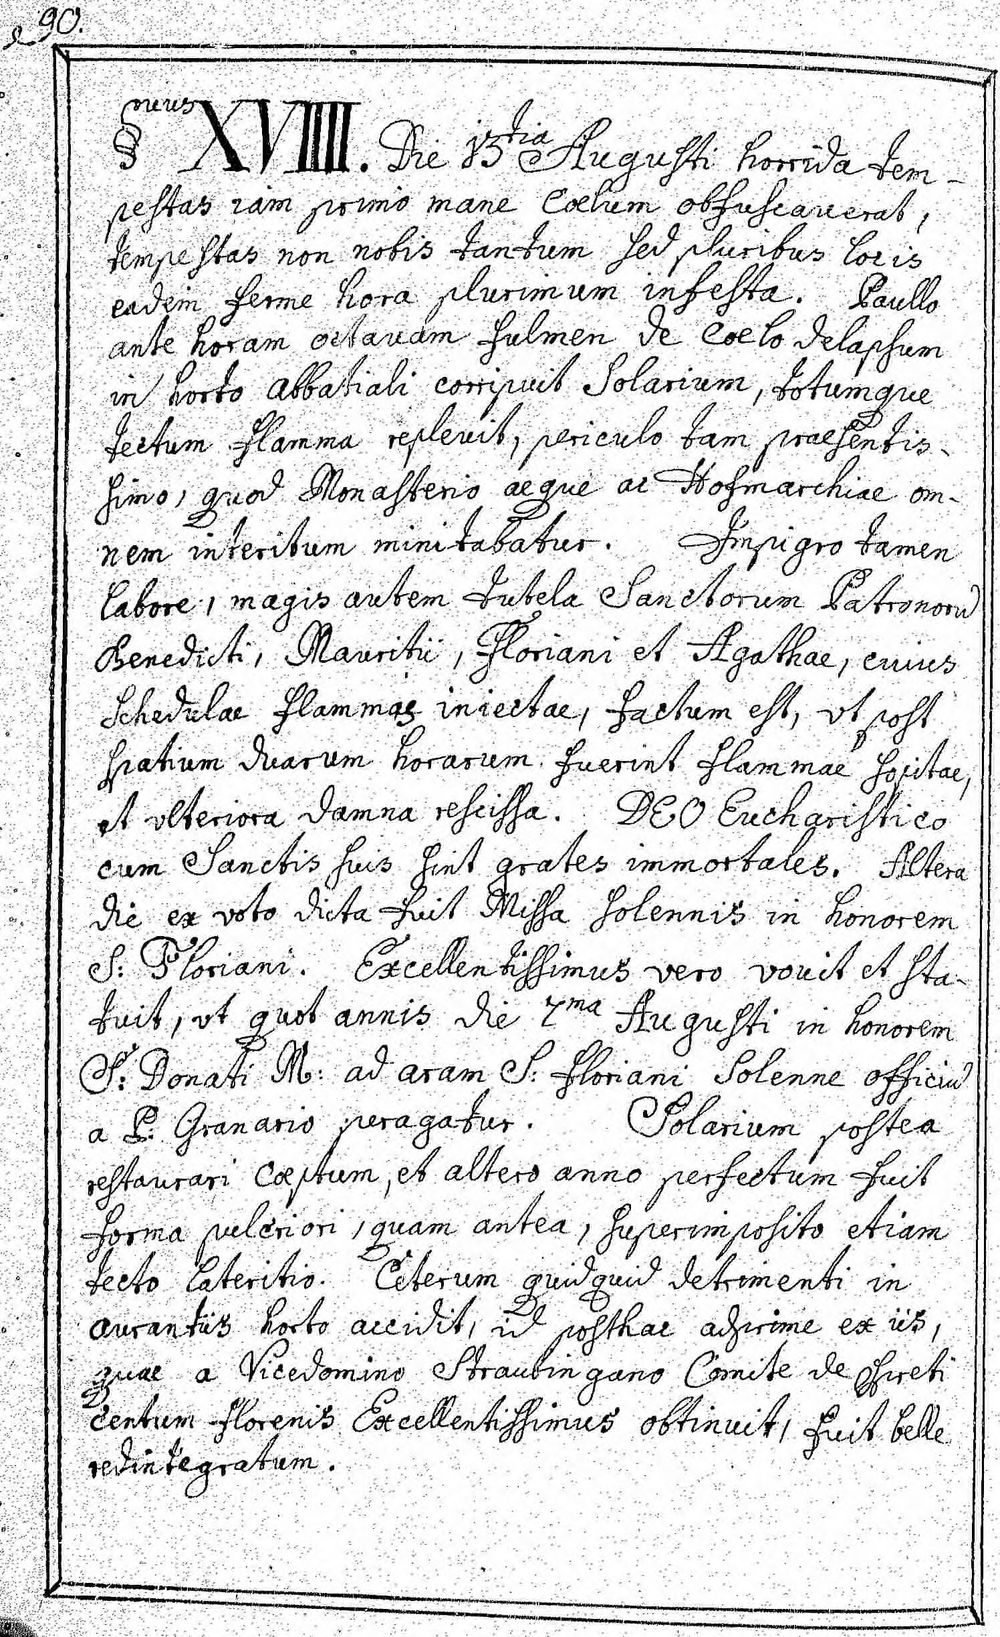 90.
§nuus XVIIII. Die 13tia Augusti horrida tem-
pestas iam primo mane Coelum obfuscauerat,
tempestas non nobis tantum sed pluribus locis
eadem ferme hora plurimum infesta. Paullo
ante horam octauam fulmen de Coelo delapsum
in horto abbatiali corripuit Solarium, totumque
tectum flamma repleuit, periculo tam praesentis-
simo, quod Monasterio aeque ac Hofmarchiae om-
nem interitum minitabatur. Impigro tamen
labore, magis autem tutela Sanctorum Patronorū
Benedicti, Mauritii, Floriani et Agathae, cuius
Schedulae flammae iniectae, factum est, vt post
spatium duarum horarum fuerint flammae sopitae,
et vlteriora damna rescissa. DEO Eucharistico
cum Sanctis suis sint grates immortales. Altera
die ex voto dicta fuit Missa solennis in honorem
S: Floriani. Excellentissimus vero vovit et sta-
tuit, vt quot annis die 7ma Augusti in honorem
S: Donati M: ad aram S: Floriani Solenne officiū
a P: Granario peragatur. Solarium postea
restaurari Cœptum, et altero anno perfectum fuit
forma pulcriori, quam antea, superimposito etiam
tecto lateritio. Ceterum quidquid detrimenti in
aurantiis horto accidit, id posthac adprime ex iis,
quae a Vicedomino Straubingano Comite de
centum florenis Excellentissimus obtinuit, fuit belle
redintegratum.